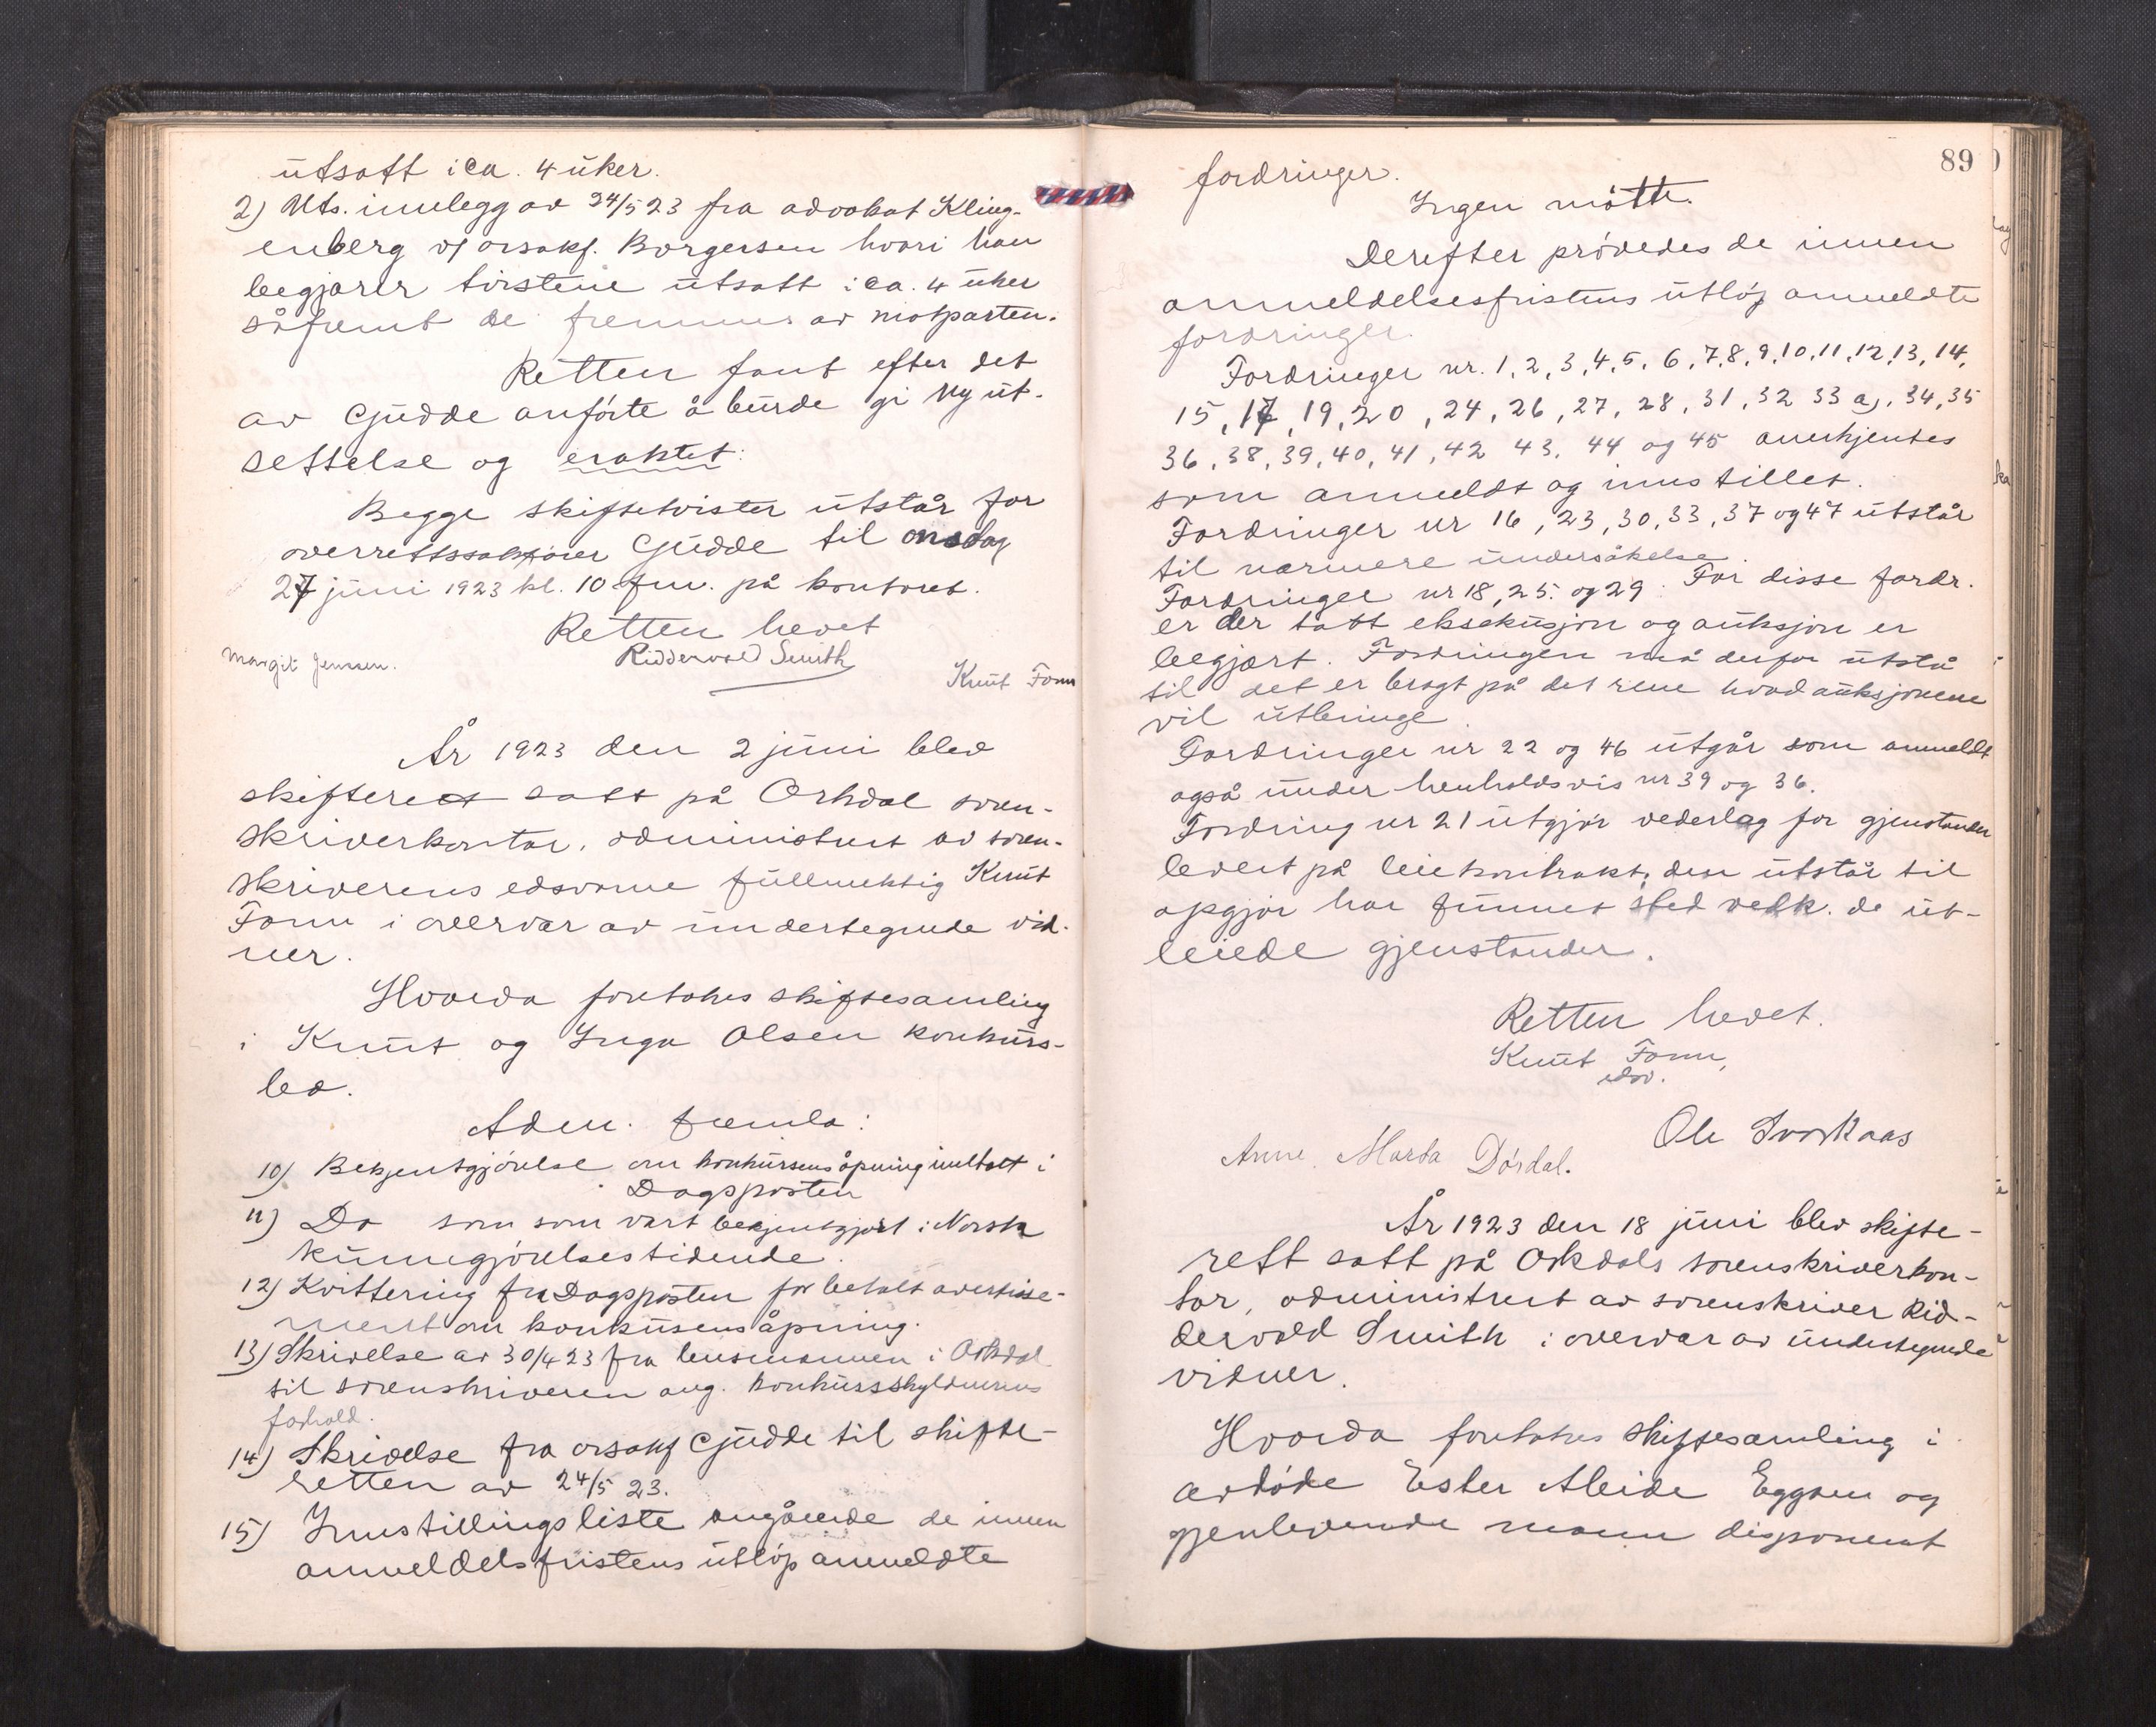 utsatt i ca. 4 uker.
2) Uts. innlegg av 24/5 23 fra advokat Kling-
enberg v/ orsakf. Borgersen hvori han
begjærer tvistene utsatt i ca. 4 uker
såfremt de fremmes av motparten.
Retten fant efter det
av Gjudde anførte å burde gi ny ut-
settelse og eraktet:
Begge skiftetvister utstår for
overrettssakfører Gjudde til onsdag
27 juni 1923 kl. 10 fm. på kontoret.
Retten hevet
Ridderwold Smith
Margit Jenssen.
Knut Fonn
År 1923 den 2 juni blev
skifterett satt på Orkdal soren-
skriverkontor, administrert av soren-
skriverens edsvorne fullmektig Knut
Fonn i overvær av undertegnede vid-
ner.
Hvorda foretokes skiftesamling
i Knut og Inga Olsen konkurs-
bo.
Adm. fremla:
10) Bekjentgjørelse om konkursens åpning inntatt i
Dagsposten
11) Do som som vært bekjentgjort i Norsk
kunngjørelsestidende.
12) Kvittering fra Dagsposten for betalt avertisse-
ment om konkusens åpning.
13) Skrivelse av 30/4 23 fra lensmannen i Orkdal
til sorenskriveren ang. konkursskyldnerens
forhold.
14) Skrivelse fra orsakf Gjudde til skifte-
retten av 24/5 23.
15) Innstillingsliste angående de innen
anmeldelsfristens utløp anmeldte
89
fordringer.
Ingen møtte.
Derefter prøvedes de innen
anmeldelsesfristens utløp anmeldte
fordringer.
Fordringer nr. 1, 2, 3, 4, 5, 6, 7, 8, 9, 10, 11, 12, 13, 14,
15, 17, 19, 20, 24, 26, 27, 28, 31, 32 33 a), 34, 35
36, 38, 39, 40, 41, 42 43, 44 og 45 anerkjentes
som anmeldt og innstillet.
Fordringer nr 16, 23, 30, 33, 37 og 47 utstår
til nærmere undersøkelse.
Fordringer nr 18, 25. og 29. For disse fordr.
er der tatt eksekusjon og auksjon er
begjært. Fordringen må derfor utstå
til det er bragt på det rene hvad auksjonene
vil utbringe.
Fordringer nr 22 og 46 utgår som anmeldt
også under henholdsvis nr 39 og 36.
Fordring nr 21 utgjør vederlag for gjenstander
levert på leiekontrakt, den utstår til
opgjør har funnet sted vedk. de ut-
leiede gjenstander.
Retten hevet.
Knut Fonn,
edsv.
Ole Svorkaas
Anne Marta Dørdal.
År 1923 den 18 juni blev skifte-
rett satt på Orkdals sorenskriverkon-
tor, administrert av sorenskriver Rid-
dervold Smith i overvær av undertegnede
vidner.
Hvorda foretokes skiftesamling i
avdøde Ester Aleide Eggen og
gjenlevende mann disponent